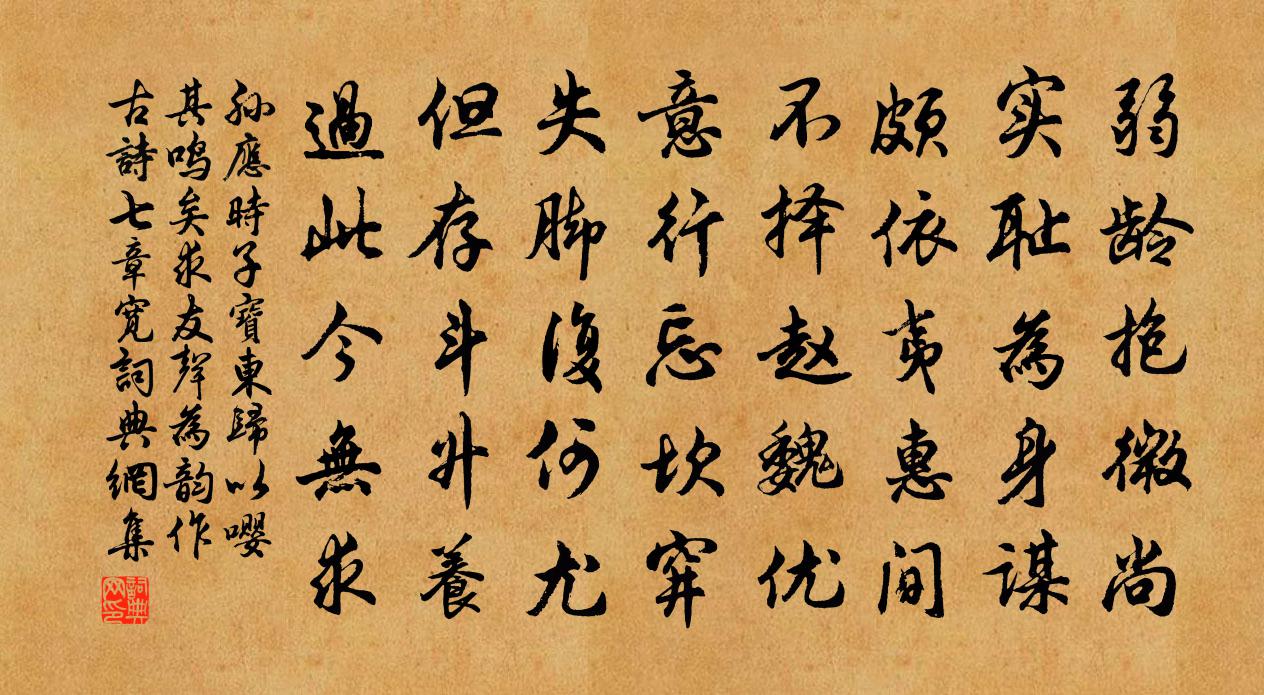 弱龄抱微尚
实耻為身谋
颇依夷惠间
不择赵魏优
意行忘坎穽
失脚復何尤
但存斗升養
過此今無求
孙應時子寶東歸以嘤
其鸣矣求友聲為韵作
古詩七章寬詞典網集
詞典网印